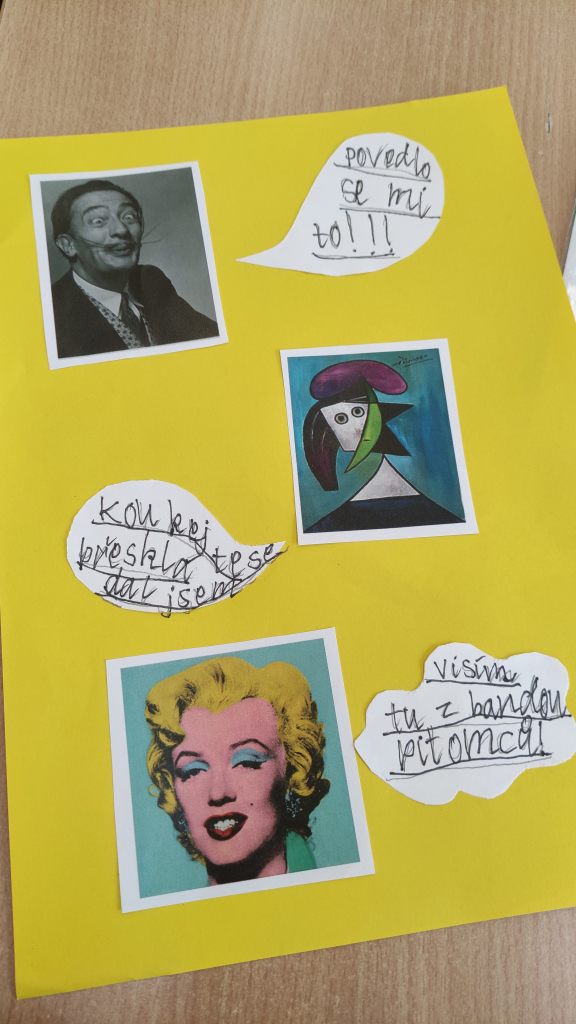 povedlo
se mi
to!!!
Koukej
přeskla te se
dal jsem
visím
tu z bandou
pitomců!